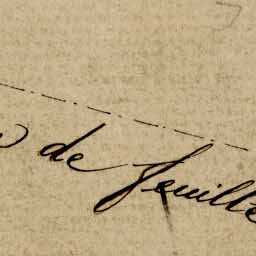 de feuille